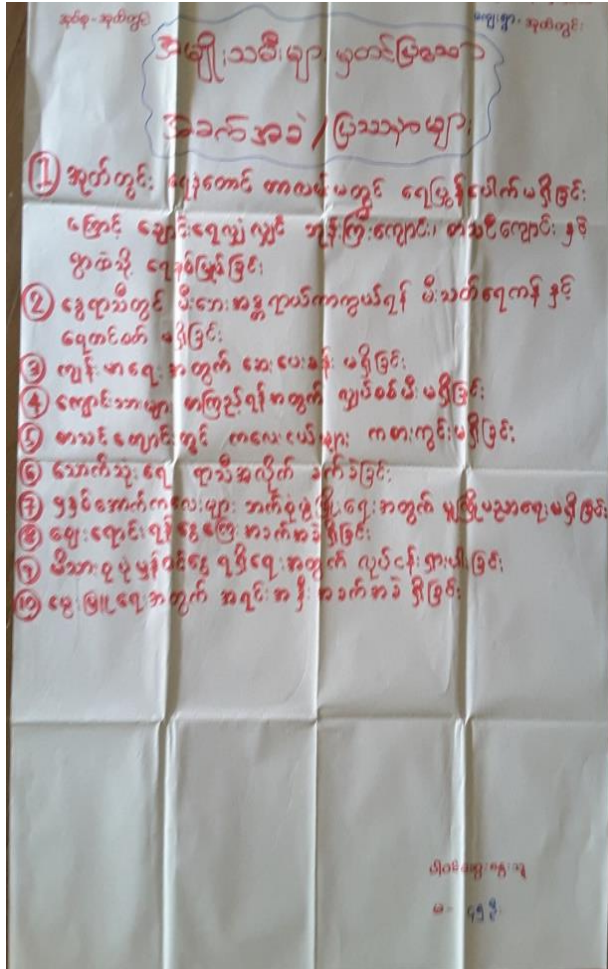 အုပ်စု - အုတ်တွင်း
ကျေးရွာ - အုတ်တွင်း
အမျိုးသမီးများ မှတင်ပြသော
အခက်အခဲ / ပြဿနာများ
① အုတ်တွင်း ရေနံတောင် တာလမ်းမတွင် ရေပြွန်ပေါက်မရှိခြင်း
ကြောင့် ချောင်းရေလျှံလျှင် ဘုန်းကြီးကျောင်း၊ စာသင်ကျောင်း နှင့်
ရွာထဲသို့ ရေနစ်မြုပ်ခြင်း
② နွေရာသီတွင် မီးဘေးအန္တရာယ်ကာကွယ်ရန် မီးသတ်ရေကန် နှင့်
ရေတင်စက် မရှိခြင်း
③ ကျန်းမာရေး အတွက် ဆေးပေးခန်း မရှိခြင်း
④ ကျောင်းသားများ စာကြည့်ရန်အတွက် လျှပ်စစ်မီး မရှိခြင်း
⑤ စာသင်ကျောင်းတွင် ကလေးငယ်များ ကစားကွင်းမရှိခြင်း
⑥ သောက်သုံးရေ ရာသီအလိုက် ခက်ခဲခြင်း
⑦ ၅နှစ်အောက်ကလေးများ ဘက်စုံဖွံ့ဖြိုးရေးအတွက် မူကြိုပညာရေးမရှိခြင်း
⑧ ဈေးရောင်းရန်ငွေကြေး အခက်အခဲရှိခြင်း
⑨ မိသားစုပုံမှန်ဝင်ငွေ ရရှိရေးအတွက် လုပ်ငန်းရှားပါးခြင်း
⑩ မွေးမြူရေးအတွက် အရင်းအနှီး အခက်အခဲ ရှိခြင်း
ပါဝင်ဆွေးနွေးသူ
မ -